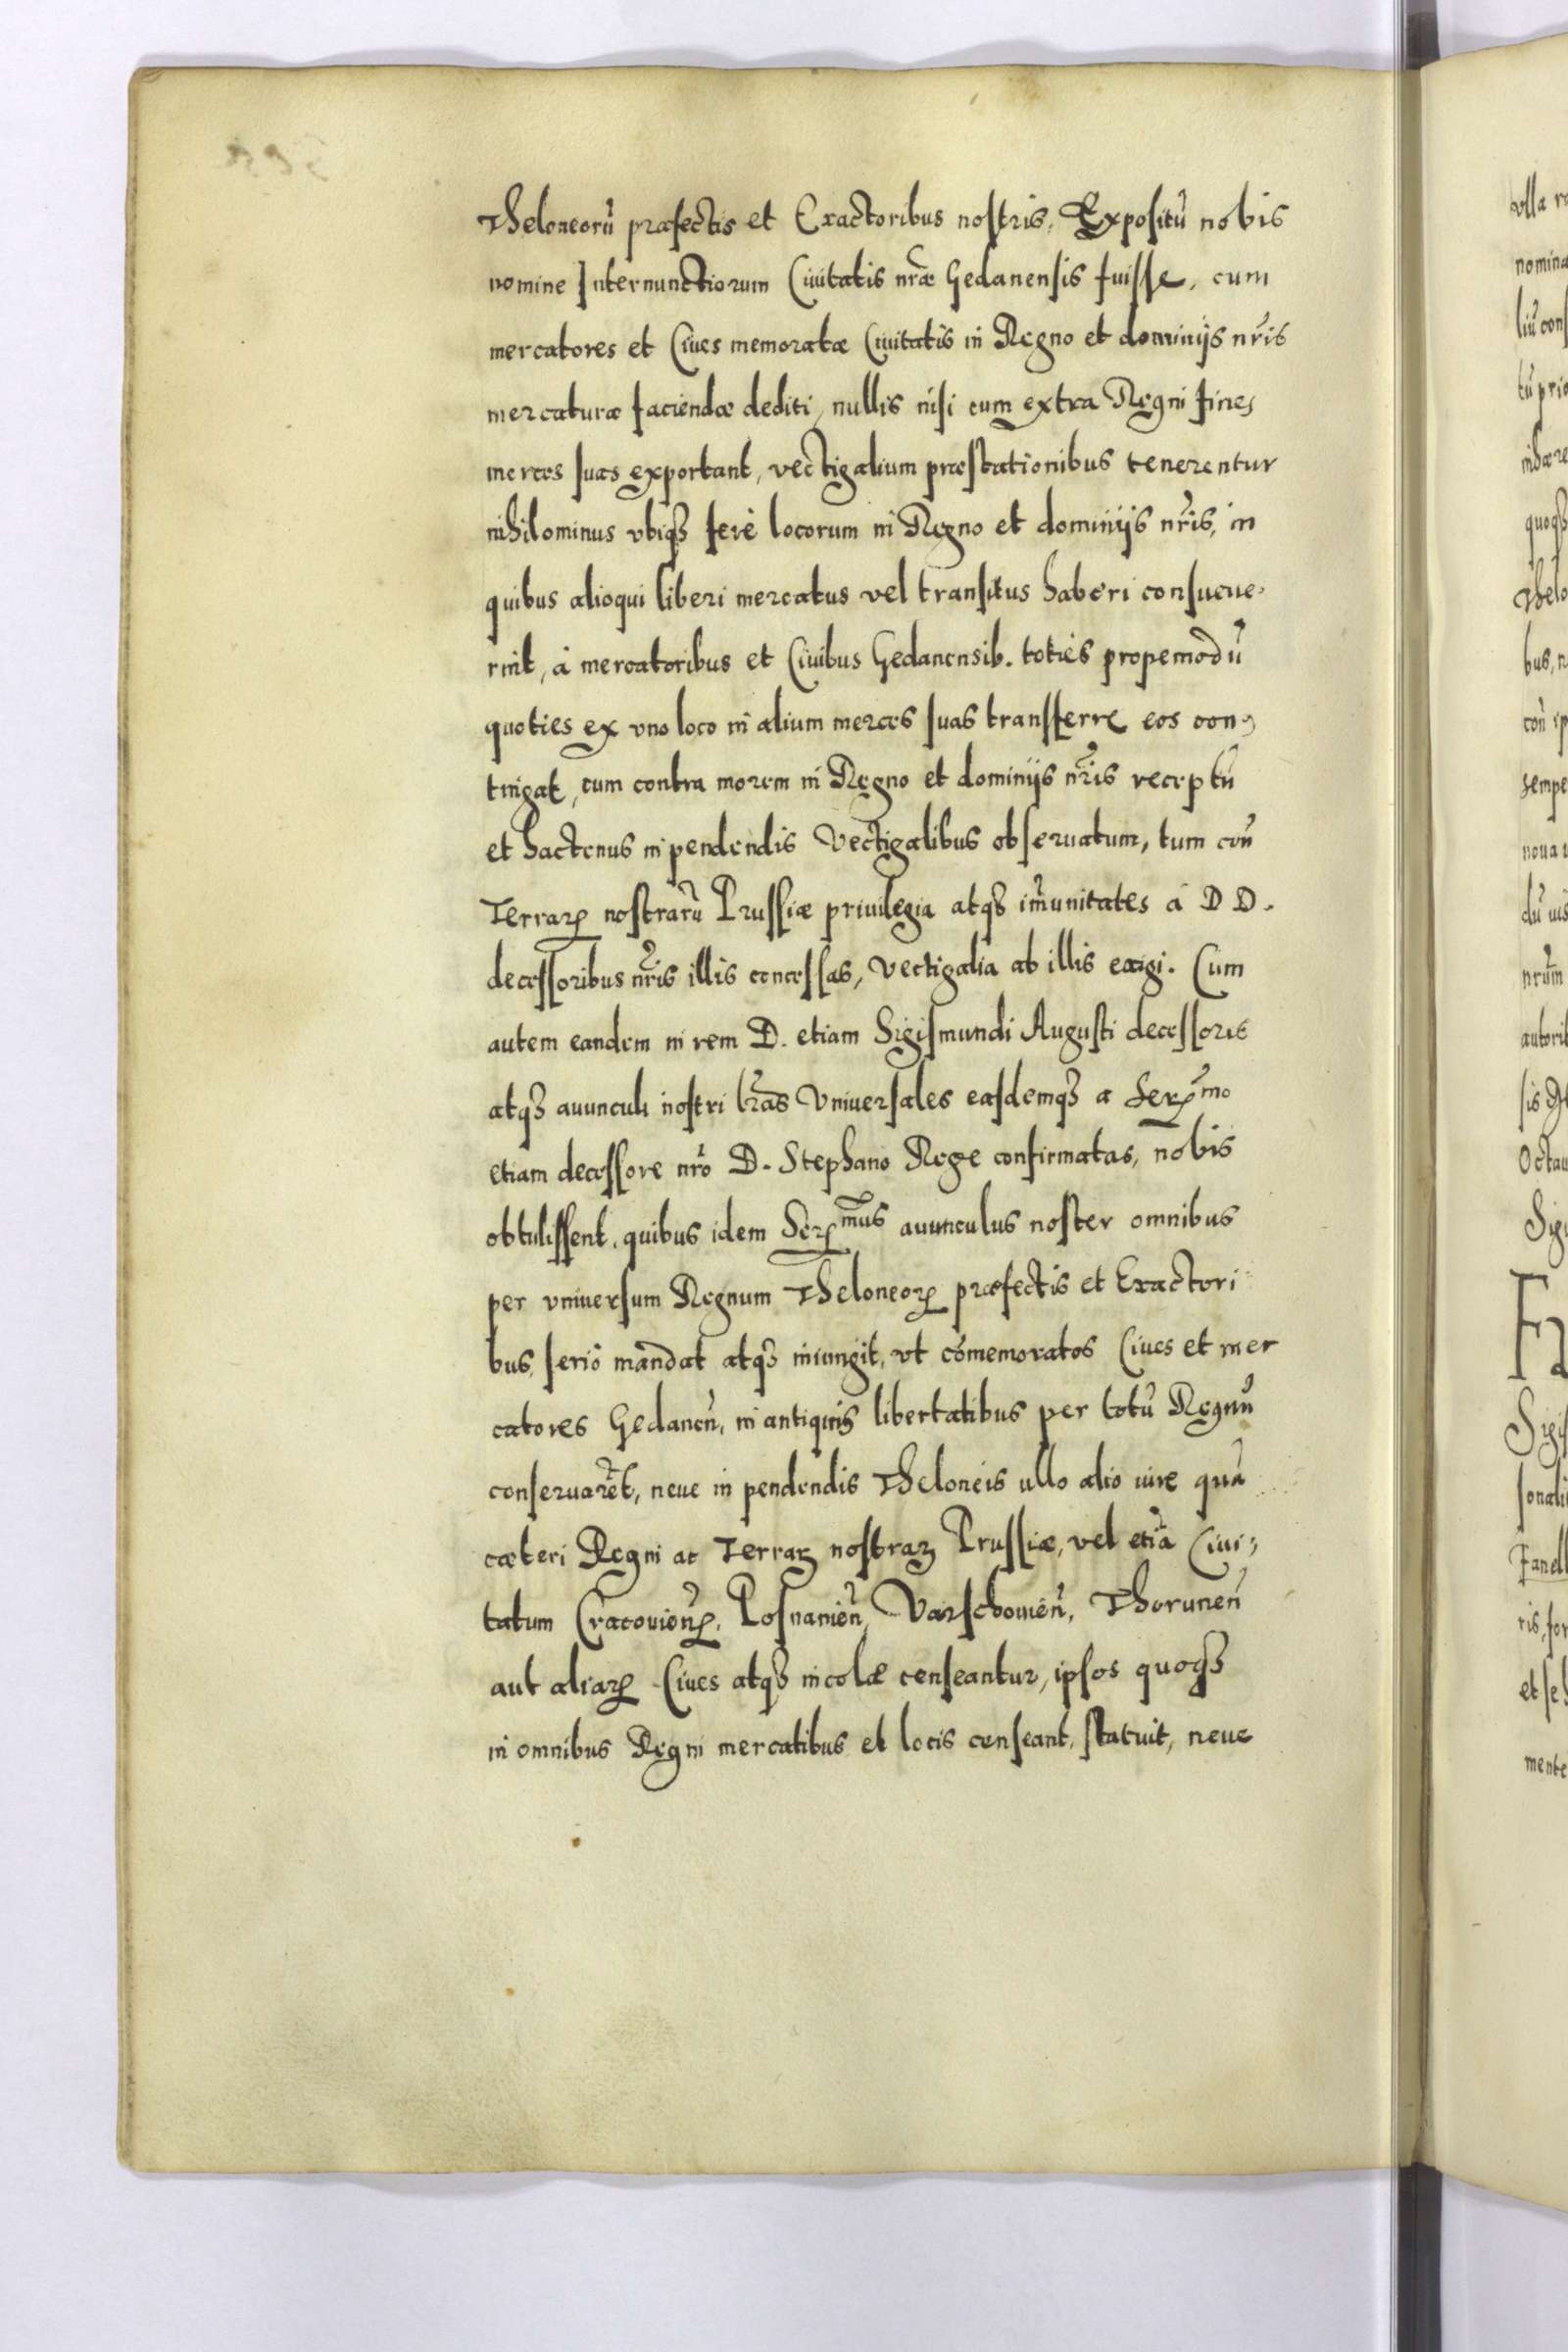 Theloneorũ præfectis et Exactoribus nostris. Expositũ nobis
nomine Internunctiorum Ciuitatis nr̃æ Gedanensis fuisse, cum
mercatores et Ciues memoratæ Ciuitatis in Regno et dominijs nr̃is
mercaturæ faciendæ dediti, nullis nisi cum extra Regni fines
merces suas exportant, vectigalium præstationibus tenerentur
nihilominus vbiqꝫ ferè locorum in Regno et dominijs nr̃is, in
quibus alioqui liberi mercatus vel transitus haberi consueue-
rint, à mercatoribus et Ciuibus Gedanensib. toties propemodũ
quoties ex vno loco in alium merces suas transferre eos con-
tingat, cum contra morem in Regno et dominijs nr̃is receptũ
et hactenus in pendendis Vectigalibus obseruatum, tum con̄
Terrarꝝ nostrarũ Prussiæ priuilegia atqꝫ im̃unitates à D D.
decessoribus nr̃is illis concessas, Vectigalia ab illis exigi. Cum
autem eandem in rem D. etiam Sigismundi Augusti decessoris
atqꝫ auunculi nostri lr̃as Vniuersales easdemqꝫ a Serꝝmo
etiam decessore nr̃o D. Stephano Rege confirmatas, nobis
obtulissent, quibus idem Serꝝmus auunculus noster omnibus
per vniuersum Regnum Theloneorꝝ præfectis et Exactori
bus, seriò mandat atqꝫ iniungit, vt cõmemoratos Ciues et mer
catores Gedaneñ, in antiquis libertatibus per totũ Regnũ
conseruarẽt, neue in pendendis Theloneis ullo alio iure quã
cæteri Regni ac Terraꝝ nostraꝝ Prussiæ, vel etiã Ciui-
tatum Cracouieñꝝ, Posnanieñ, Varschouieñ, Thoruneñ
aut aliarꝝ Ciues atqꝫ incolæ censeantur, ipsos quoqꝫ
in omnibus Regni mercatibus et locis censeant, statuit, neue